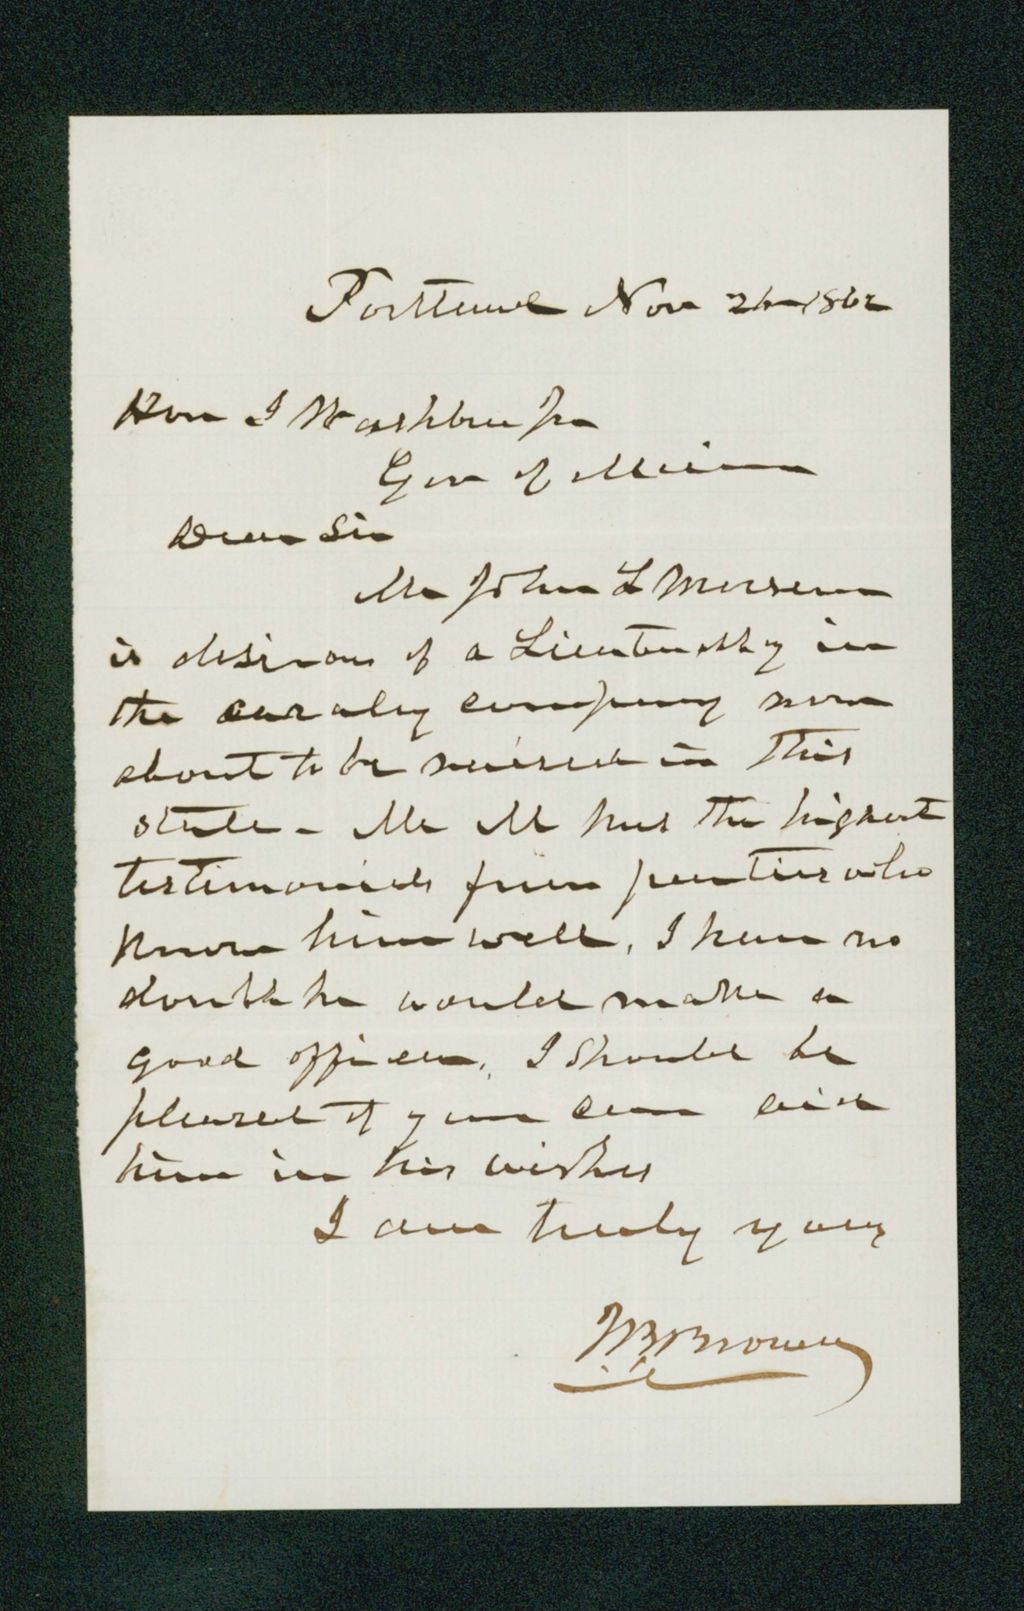 Portland Nov 24 1862
Hon I Washburn Jr
Gov of Maine
Dear Sir
Mr John L
is desirous of a Lieutenancy in
the cavalry company now
about to be raised in this
state - Mr M has the highest
testimonials from parties who
know him well, I have no
doubt he would make a
good officer, I should be
pleased if you can aid
him in his wishes
I am truly yours
J B Brown